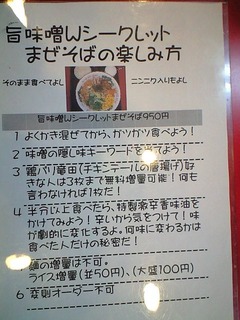 旨味噌Wシークレット
まぜそばの楽しみ方
そのまま食べてよし
ニンニク入りもよし
旨味噌Wシークレットまぜそば950円
1 よくかき混ぜてから、ガツガツ食べよう!
2 味噌の隠し味キーワードを当てよう!
3 鶏バリ竜田(チキンテールの唐揚げ)好
きな人は3枚まで無料増量可能!何も
言わなければ1枚だ!
4 半分以上食べたら、特製激辛香味油を
かけてみよう!辛いから気をつけて!味
が劇的に変化するよ。何味に変わるかは
食べた人だけの秘密だ!
麺の増量は不可。
ライス増量(並50円)、(大盛100円)
6 変則オーダー不可